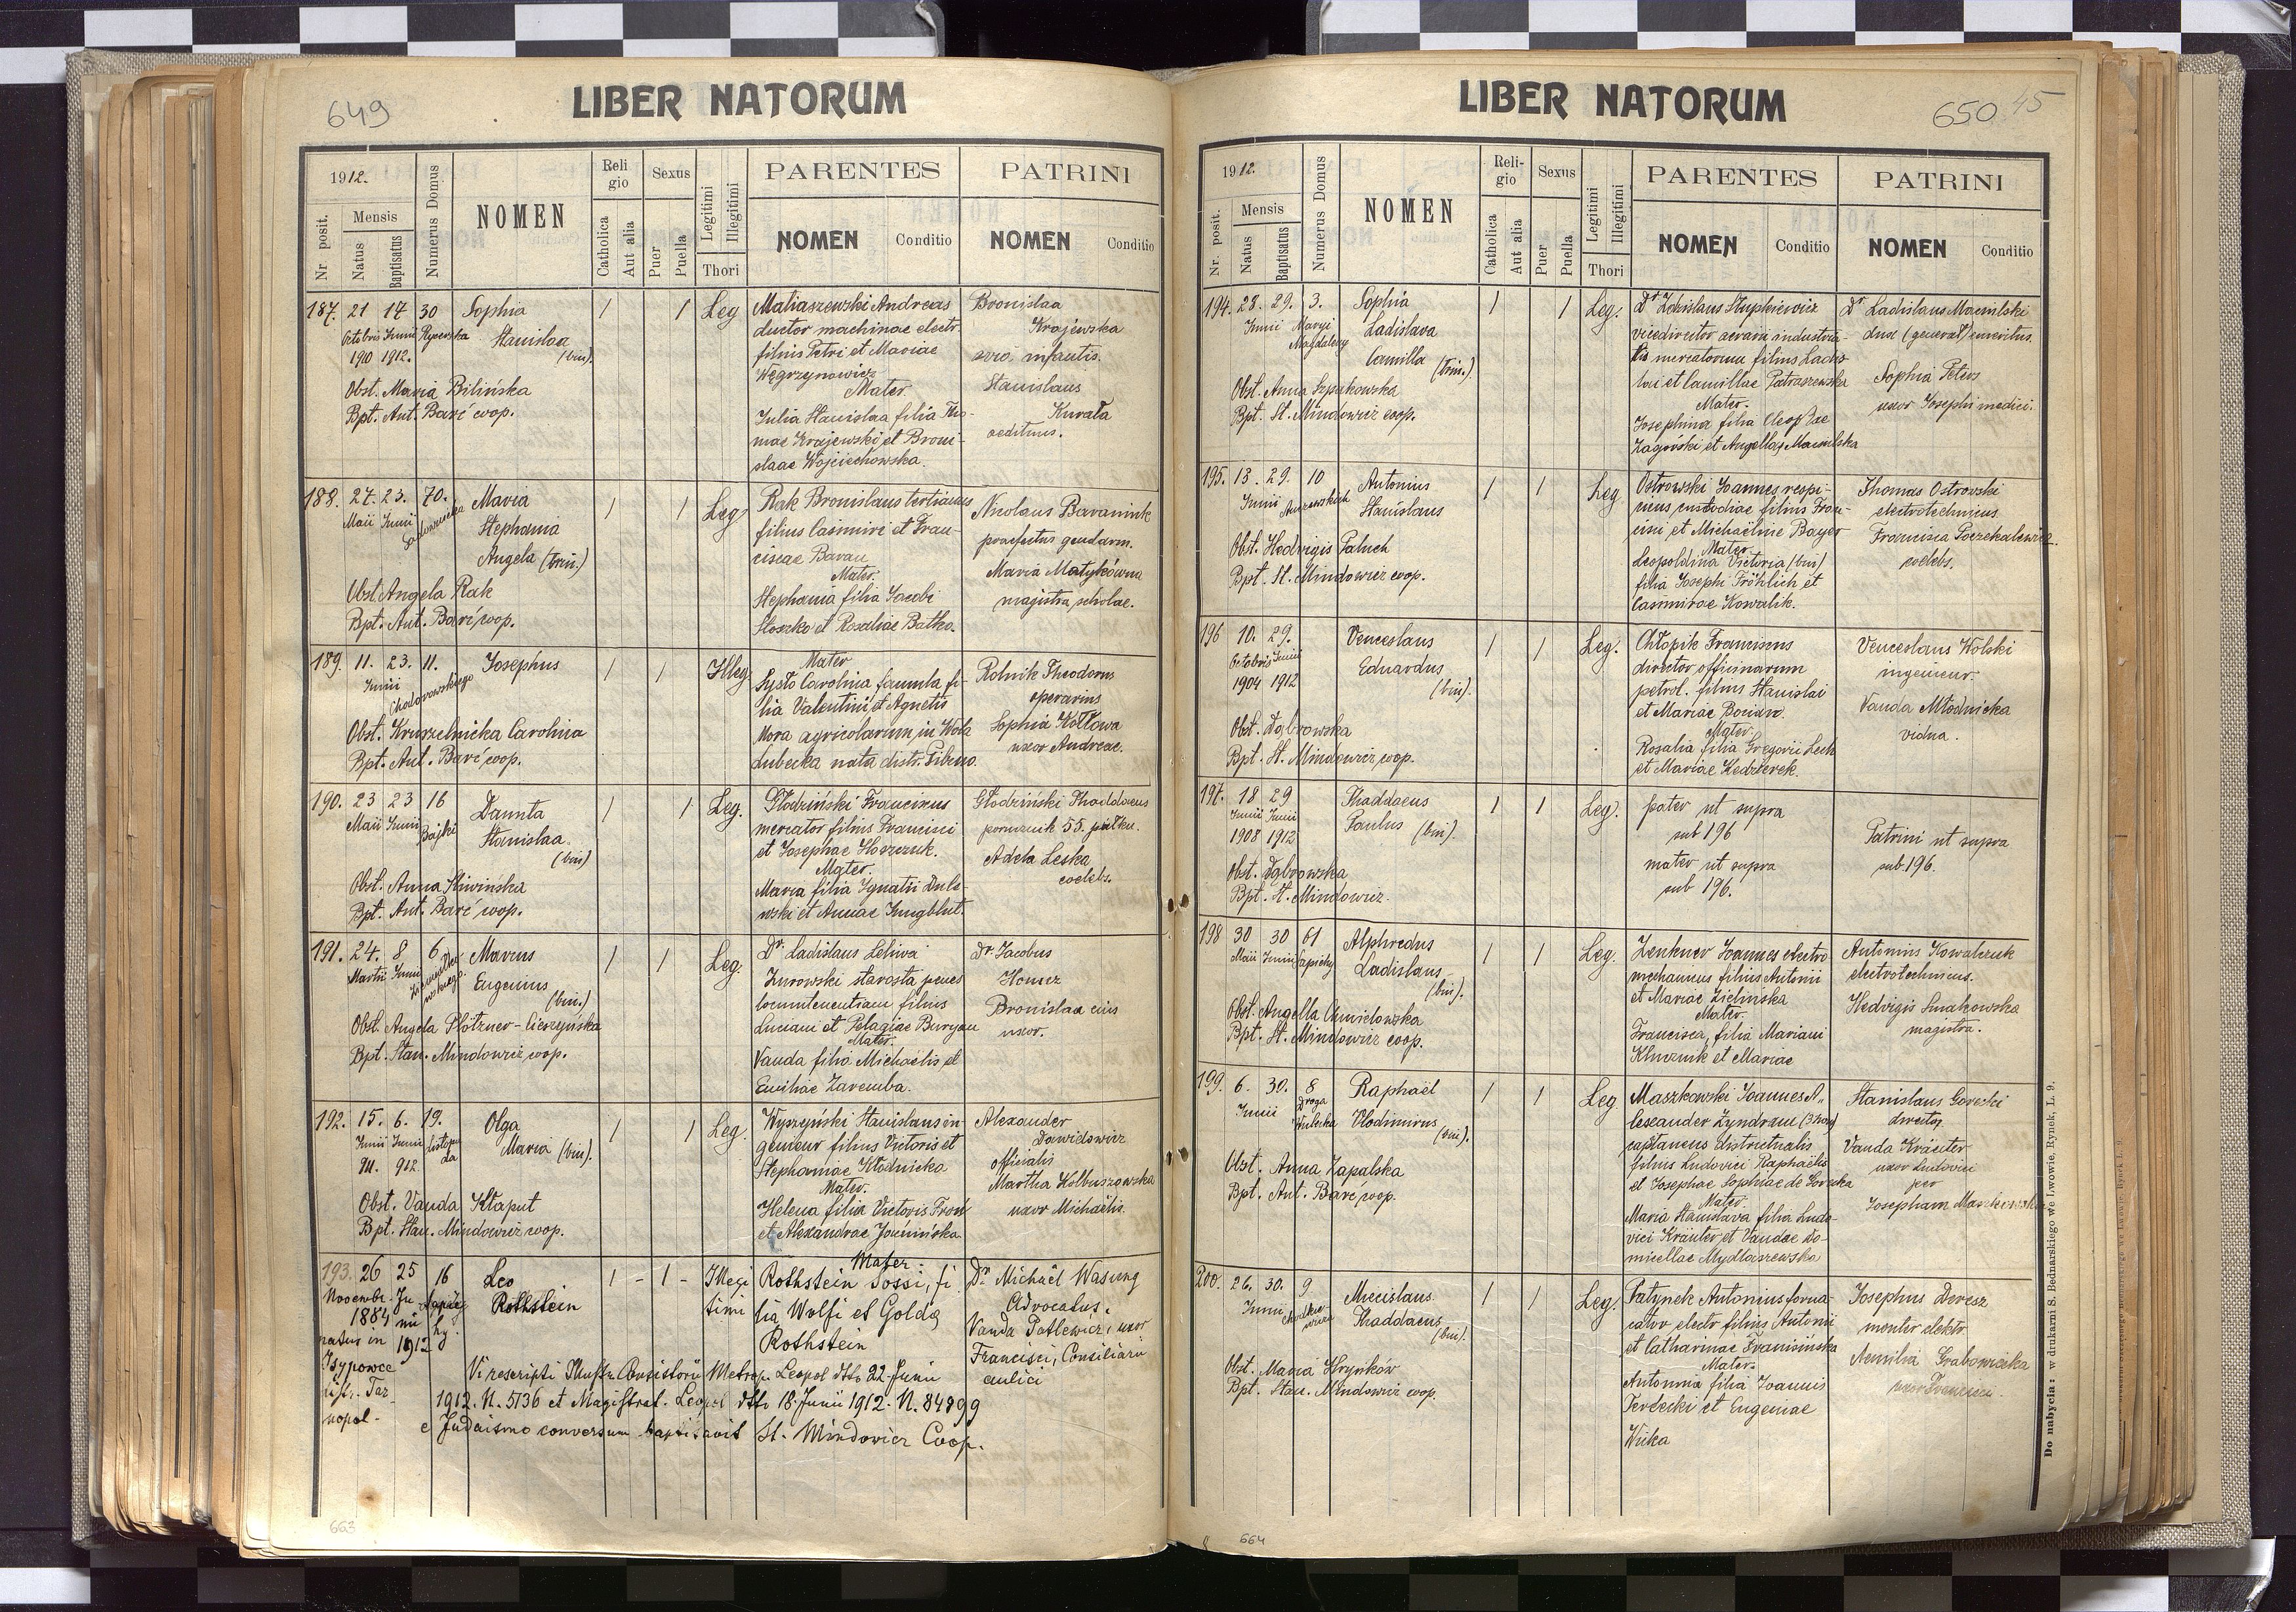 649
LIBER NATORUM
1912.
Nr. posit.
Mensis
Natus
Baptisatus
Numerus Domus
NOMEN
Religio
Catholica
Aut alia
Sexus
Puer
Puella
Legitimi
Illegitimi
Thori
PARENTES
NOMEN
Conditio
PATRINI
NOMEN
Conditio
187. 21 17 30 Sophia 1 1 Leg
Octobris Junii
1910 1912.
Stanislaa
(bin).
Obst. Maria Bilińska
Bpt. Ant. Barć coop.
Matiaszewski Andreas
ductor machinae electr.
filius Petri et Mariae
Węgrzynowicz
Mater.
Julia Stanislaa filia Tho-
mae Krajewski et Broni-
slaae Wojciechowska.
Bronislaa
Krajewska
infantis.
Stanislaus
Kurata
aedituus.
188. 27. 23. 70. Maria 1 1 Leg
Maii Junii
Stephania
Angela (trin.)
Obst. Angela Rak
Bpt. Ant. Barć coop.
Rak Bronislaus tertianus
filius Casimiri et Fran-
ciscae Baran
Mater.
Stephania filia Jacobi
Stoszko et Rosaliae Batko.
Nicolaus Baraniuk
praefectus gendarm.
Maria Matykówna
magistra scholae.
189. 11. 23. 11. Josephus 1 1 Illeg
Junii
Chodorowskiego
Obst. Kruszelnicka Carolina
Bpt. Ant. Barć coop.
Mater
Systo Carolina famula fi-
lia Valentini et Agnetis
Mora agricolarum in Wola
lubecka nata distr. Pilzno.
Rolnik Theodorus
operarius
Sophia Kotlowa
uxor Andreae.
190. 23 23 16 Danuta 1 1 Leg.
Maii Junii Bajki
Stanislaa.
(bin)
Obst. Anna Śliwińska
Bpt. Ant. Barć coop.
Głodziński Franciscus
mercator filius Francisci
et Josephae
Mater.
Maria filia Ignatii Dule-
wski et Annae Jungblut.
Głodziński Thaddaeus
porucznik 55. pułku.
Adela Leska
coelebs.
191. 24. 8 6 Marcus 1 1 Leg.
Martii Junii
Eugenius
(bin.)
Obst. Angela Plötzner-Cieszyńska
Bpt. Stan. Mindowicz coop.
Dr. Ladislaus Leliwa
Żurowski starosta penes
locumtenentiam filius
Luciani et Pelagiae Buryan
Mater.
Vanda filia Michaelis et
Emiliae Zaremba.
Dr. Jacobus
Homez
Bronislaa eius
uxor.
192. 15. 6. 19. Olga 1 1 Leg.
Junii Junii Listopada
911. 912
Maria (bin).
Obst. Vanda Kłaput
Bpt. Stan. Mindowicz coop.
Wyszyński Stanislaus in-
genieur filius Victoris et
Stephaniae Kłodnicka
Mater.
Helena filia Victoris Fron
et Alexandrae
Alexander
Dawidowicz
officialis
Martha Kolbuszowska
uxor Michaëlis.
193. 26 25 16 Leo 1 - 1 - Illegi
timi
Rothstein
Novembr. Ju-
1884 nii
natus in 1912
Isypowce
distr. Tar
nopol -
Mater
Rothstein Sossi, fi
lia Wolfi et Golda
Rothstein
Dr. Michaël Wasung
Advocatus.
Vanda Petlewicz, uxor
Francisci, Consiliarii
aulici
Vi rescripti Illustr. Consistorii Metrop. Leopol dtto 22 Junii
1912. N. 5136 et Magistrat. Leopol dtto 18. Junii 1912. N. 84899
e Judaismo conversum baptisavit St. Mindowicz Coop.
663
LIBER NATORUM
650 45
1912.
Nr. posit.
Mensis
Natus
Baptisatus
Numerus Domus
NOMEN
Religio
Catholica
Aut alia
Sexus
Puer
Puella
Legitimi
Illegitimi
Thori
PARENTES
NOMEN
Conditio
PATRINI
NOMEN
Conditio
194. 28. 29. 3. Sophia 1 1 Leg.
Junii Maryi Magdaleny
Ladislava
Camilla (trin.)
Obst. Anna Szpakowska
Bpt. St. Mindowicz coop.
Dr. Zdislaus Stupkiewicz
vicedirector aerarii industria-
lis mercatorum filius Ladis-
lai et Camillae Pataszewska
Mater.
Josephina filia Cleophae
Zagórski et Angellae
Dr. Ladislaus
dux (generał) emeritus.
Sophia Peters
uxor Josephi medici.
195. 13. 29. 10 Antonius 1 1 Leg
Junii
Stanislaus
Obst. Hedvigis Paluch
Bpt. St. Mindowicz coop.
Ostrowski Joannes respi-
ciens custodiae filius Fran-
cisci et Michaëlinae Bayer
Mater.
Leopoldina Victoria (bin)
filia Josephi Fröhlich et
Casimirae Kowalik.
Thomas Ostrowski
electrotechnicus
Francisca
coelebs.
196 10. 29. Venceslaus 1 1 Leg.
Octobris Junii
1904 1912
Eduardus
(bin).
Obst. Dąbrowska
Bpt. St. Mindowicz coop.
Chłopik Franciscus
director officinarum
petrol. filius Stanislai
et Mariae Bocian.
Mater.
Rosalia filia Gregorii Lech
et Mariae Kedzierek.
Venceslaus Wolski
ingenieur.
Vanda Młodnicka
vidua.
197. 18 29 Thaddaeus 1 1 Leg.
Junii Junii
1908 1912
Paulus (bin).
Obst. Dąbrowska
Bpt. St. Mindowicz.
pater ut supra
sub 196
mater ut supra
sub 196.
Patrini ut supra
sub. 196.
198 30 30 61 Alphredus 1 1 Leg.
Maii Junii Sapiehy
Ladislaus
(bin).
Obst. Angella Chmielowska
Bpt. St. Mindowicz coop.
Zenkner Joannes electro-
mechanicus filius Antonii
et Mariae Zielińska
Mater.
Francisca, filia Mariani
Klucznik et Mariae
Antonius Kowalczuk
electrotechnicus.
Hedvigis Smakowska
magistra.
199. 6. 30. 8 Raphaël 1 1 Leg
Junii Droga Wulecka
Vlodimirus
(bin).
Obst. Anna Zapalska
Bpt. Ant. Barć coop.
Maszkowski Joannes A-
lexander Zyndram (3 nom)
capitaneus districtualis
filius Ludovici Raphaëlis
et Josephae Sophiae de Gorecka
Mater.
Maria Stanislava filia Ludo-
vici Kräuter et Vandae do-
micellae Mydlaszewska
Stanislaus Gorecki
director.
Vanda Kräuter
uxor Ludovici
per
Josepham Maszkowska
200. 26. 30. 9 Miecislaus 1 1 Leg.
Junii
Thaddaeus
(bin).
Obst. Maria Hrynków
Bpt. Stan. Mindowicz coop.
Patynek Antonius forna-
cator electr filius Antonii
et Catharinae
Mater.
Antonina filia Joannis
Terlecki et Eugeniae
Wilka
Josephus Deresz
monter elektr.
Aemilia Grabowiecka
uxor Francisci.
Do nabycia: w drukarni S. Bednarskiego we Lwowie, Rynek, L. 9.
664